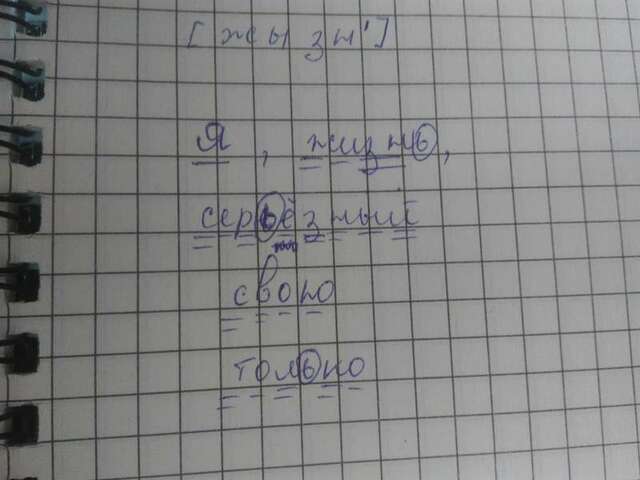 [жызн']
Я, жизнь,
серьёзный
свою
только